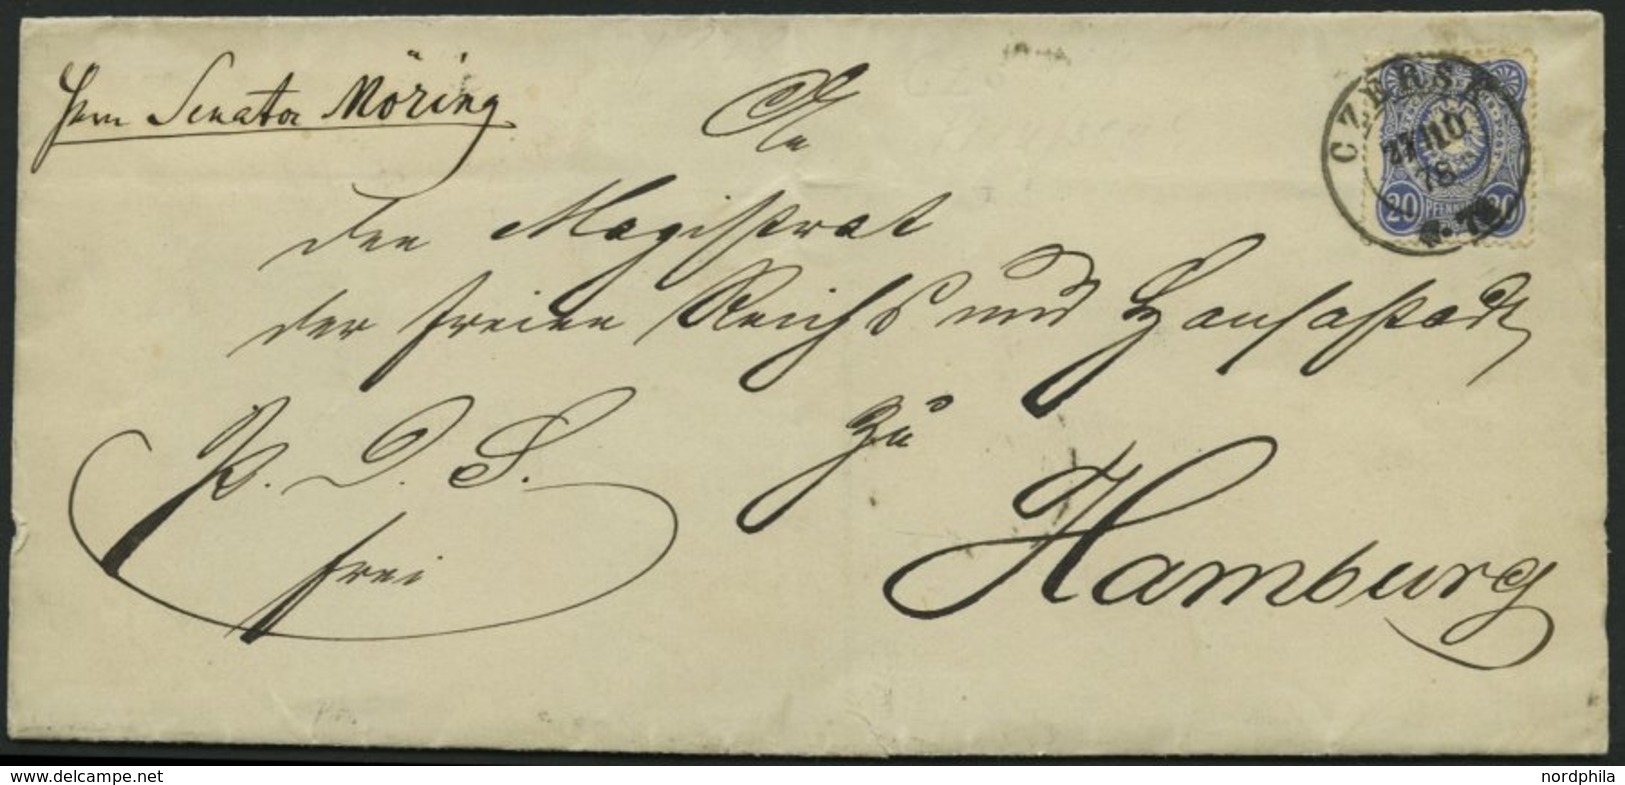 Herrn Senator Möring
An
den Magistrat
der freien Reichs und Hansastadt
zu
Hamburg
P. D. S.
frei
CZERSK
27 10
78
20 PFENNIG 20
www.delcampe.net
nordphila